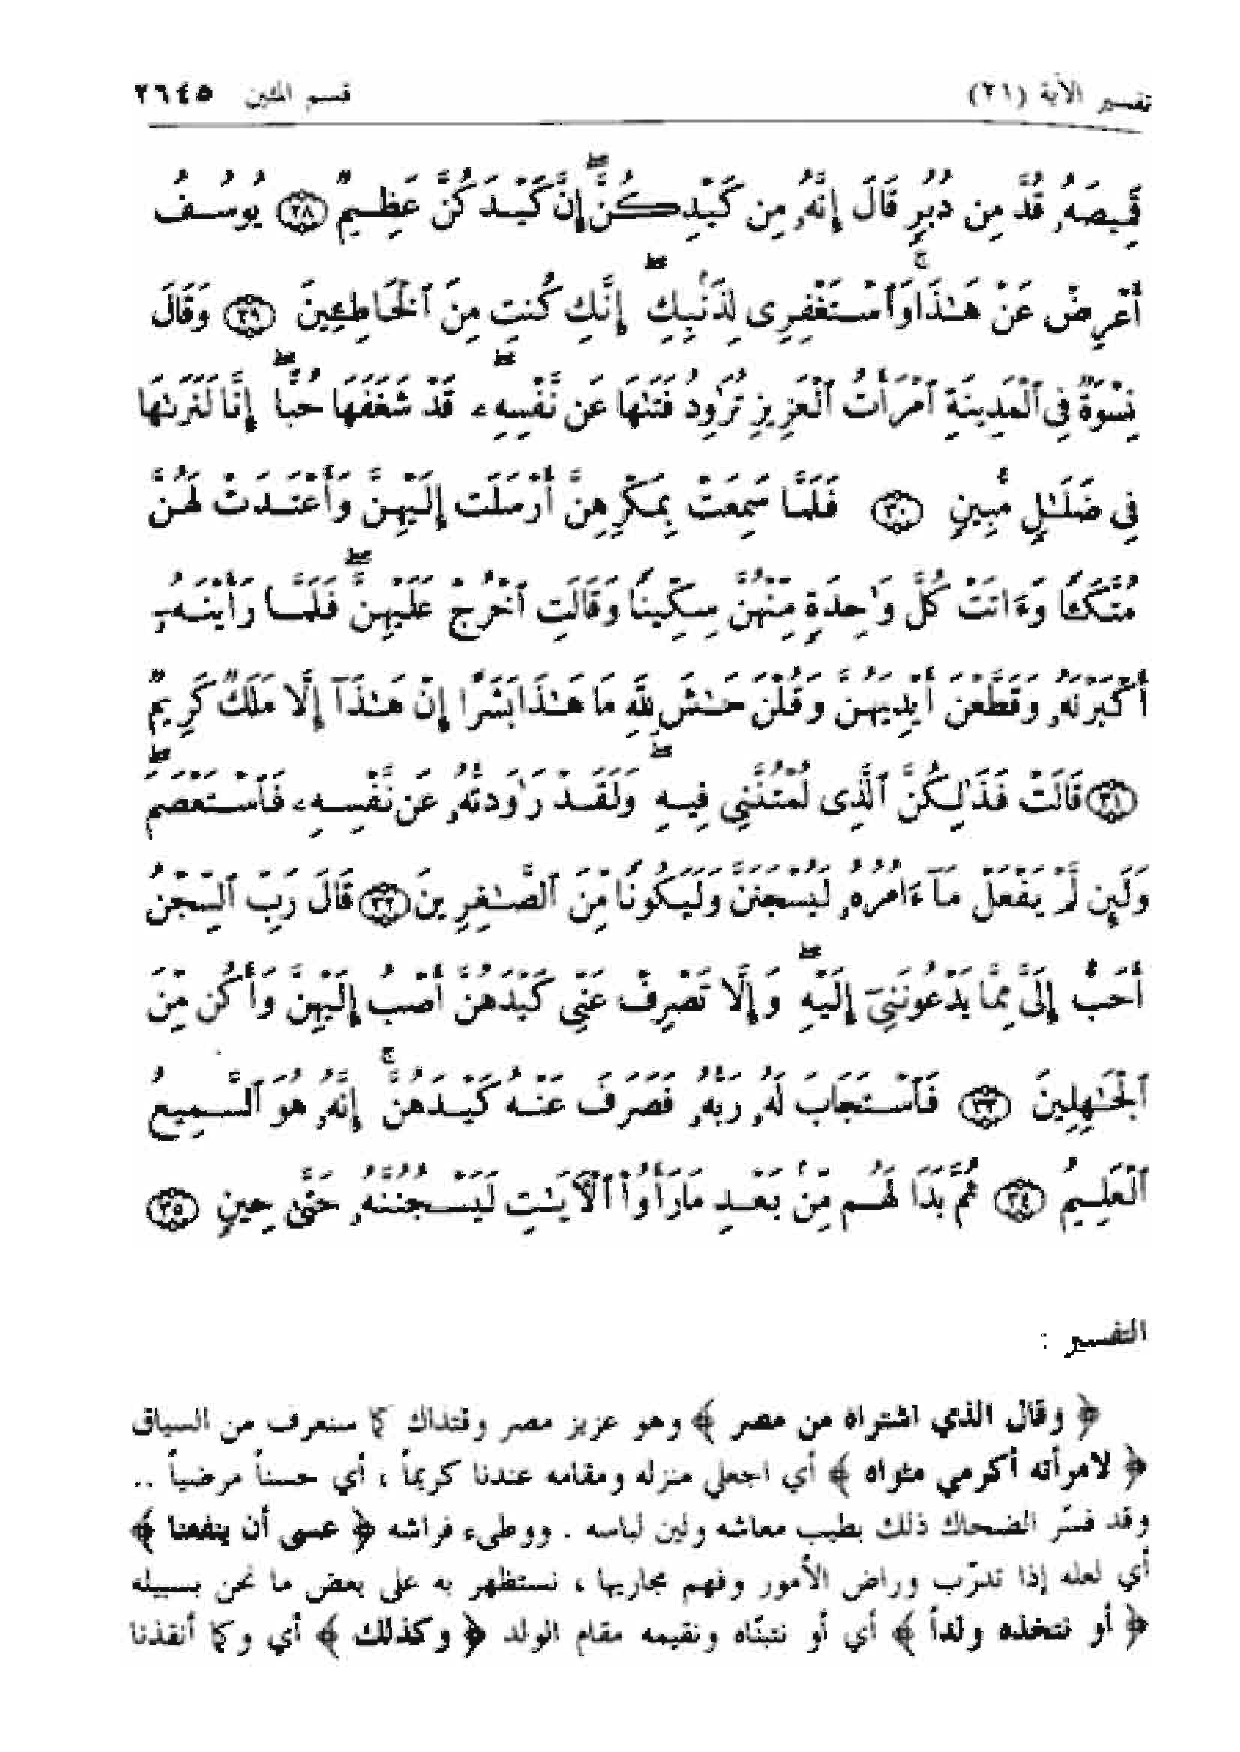 تفسير الآية (٢١) قسم المئين ٢٦٤٥
قَمِيصَهُۥ قُدَّ مِن دُبُرٍ قَالَ إِنَّهُۥ مِن كَيْدِكُنَّ ۖ إِنَّ كَيْدَكُنَّ عَظِيمٌ ﴿٢٨﴾ يُوسُفُ
أَعْرِضْ عَنْ هَـٰذَا ۚ وَٱسْتَغْفِرِى لِذَنۢبِكِ ۖ إِنَّكِ كُنتِ مِنَ ٱلْخَاطِـِٔينَ ﴿٢٩﴾ وَقَالَ
نِسْوَةٌ فِى ٱلْمَدِينَةِ ٱمْرَأَتُ ٱلْعَزِيزِ تُرَٰوِدُ فَتَىٰهَا عَن نَّفْسِهِۦ ۖ قَدْ شَغَفَهَا حُبًّا ۖ إِنَّا لَنَرَىٰهَا
فِى ضَلَـٰلٍ مُّبِينٍ ﴿٣٠﴾ فَلَمَّا سَمِعَتْ بِمَكْرِهِنَّ أَرْسَلَتْ إِلَيْهِنَّ وَأَعْتَدَتْ لَهُنَّ
مُتَّكَـًٔا وَءَاتَتْ كُلَّ وَٰحِدَةٍ مِّنْهُنَّ سِكِّينًا وَقَالَتِ ٱخْرُجْ عَلَيْهِنَّ ۖ فَلَمَّا رَأَيْنَهُۥٓ
أَكْبَرْنَهُۥ وَقَطَّعْنَ أَيْدِيَهُنَّ وَقُلْنَ حَـٰشَ لِلَّهِ مَا هَـٰذَا بَشَرًا إِنْ هَـٰذَآ إِلَّا مَلَكٌ كَرِيمٌ
﴿٣١﴾ قَالَتْ فَذَٰلِكُنَّ ٱلَّذِى لُمْتُنَّنِى فِيهِ ۖ وَلَقَدْ رَٰوَدتُّهُۥ عَن نَّفْسِهِۦ فَٱسْتَعْصَمَ ۖ
وَلَئِن لَّمْ يَفْعَلْ مَآ ءَامُرُهُۥ لَيُسْجَنَنَّ وَلَيَكُونًا مِّنَ ٱلصَّـٰغِرِينَ ﴿٣٢﴾ قَالَ رَبِّ ٱلسِّجْنُ
أَحَبُّ إِلَىَّ مِمَّا يَدْعُونَنِىٓ إِلَيْهِ ۖ وَإِلَّا تَصْرِفْ عَنِّى كَيْدَهُنَّ أَصْبُ إِلَيْهِنَّ وَأَكُن مِّنَ
ٱلْجَـٰهِلِينَ ﴿٣٣﴾ فَٱسْتَجَابَ لَهُۥ رَبُّهُۥ فَصَرَفَ عَنْهُ كَيْدَهُنَّ ۚ إِنَّهُۥ هُوَ ٱلسَّمِيعُ
ٱلْعَلِيمُ ﴿٣٤﴾ ثُمَّ بَدَا لَهُم مِّنۢ بَعْدِ مَا رَأَوُا۟ ٱلْـَٔايَـٰتِ لَيَسْجُنُنَّهُۥ حَتَّىٰ حِينٍ ﴿٣٥﴾
التفسير :
﴿ وقال الذي اشتراه من مصر ﴾ وهو عزيز مصر وقتذاك كما سنعرف من السياق
﴿ لامرأته أكرمي مثواه ﴾ أي اجعلي منزله ومقامه عندنا كريماً ، أي حسناً مرضياً ..
وقد فسّر الضحاك ذلك بطيب معاشه ولين لباسه . ووطىء فراشه ﴿ عسى أن ينفعنا ﴾
أي لعله إذا تدرّب وراض الأمور وفهم مجاريها ، نستظهر به على بعض ما نحن بسبيله
﴿ أو نتخذه ولداً ﴾ أي أو نتبنّاه ونقيمه مقام الولد ﴿ وكذلك ﴾ أي وكما أنقذنا